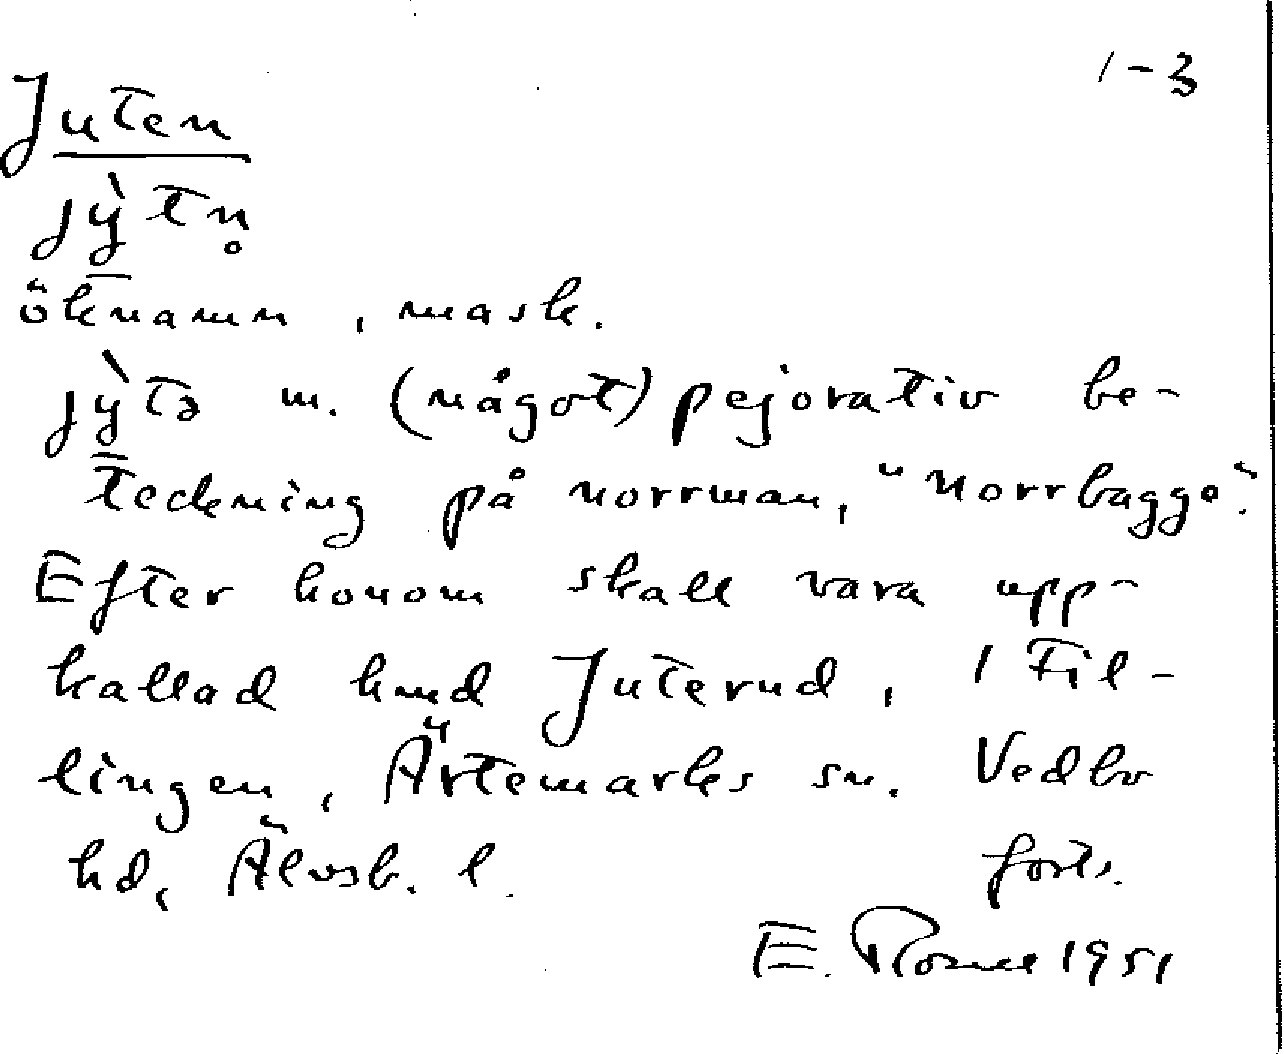 1-3
Juten
jỳ̠tn̥
öknamn, mask.
jỳ̠tə m. (något) pejorativ be-
teckning på norrman, "norrbagge".
Efter honom skall vara upp-
kallad hmd Juterud, 1 Fil-
lingen, Ärtemarks sn. Vedbo
hd, Älvsb. l.
forts.
E. 1951